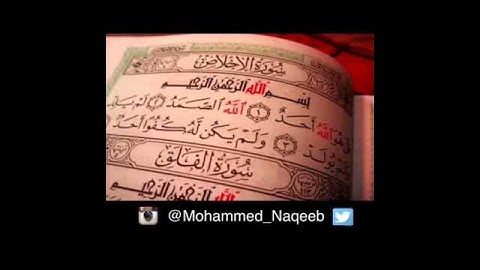 سُورَةُ الْإِخْلَاصِ
بِسْمِ اللَّهِ الرَّحْمَٰنِ الرَّحِيمِ
هُوَ اللَّهُ أَحَدٌ ١ اللَّهُ الصَّمَدُ ٢ لَمْ
يُولَدْ ٣ وَلَمْ يَكُن لَّهُ كُفُوًا أَحَدٌ
سُورَةُ الْفَلَقِ
اللَّهِ الرَّحْمَٰنِ الرَّحِيمِ
@Mohammed_Naqeeb